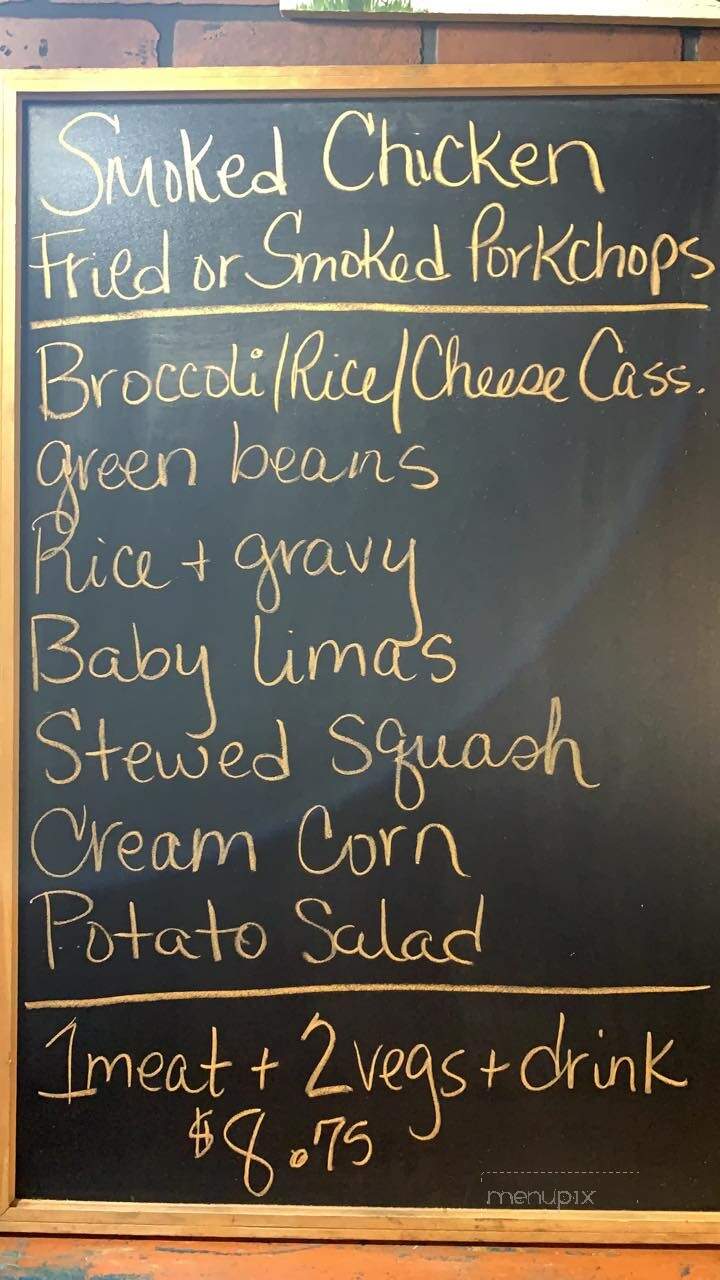 Smoked Chicken
Fried or Smoked Porkchops
Broccoli/Rice/Cheese Cass.
green beans
Rice + gravy
Baby limas
Stewed Squash
Cream Corn
Potato Salad
1 meat + 2 vegs + drink
$8.75
menupix